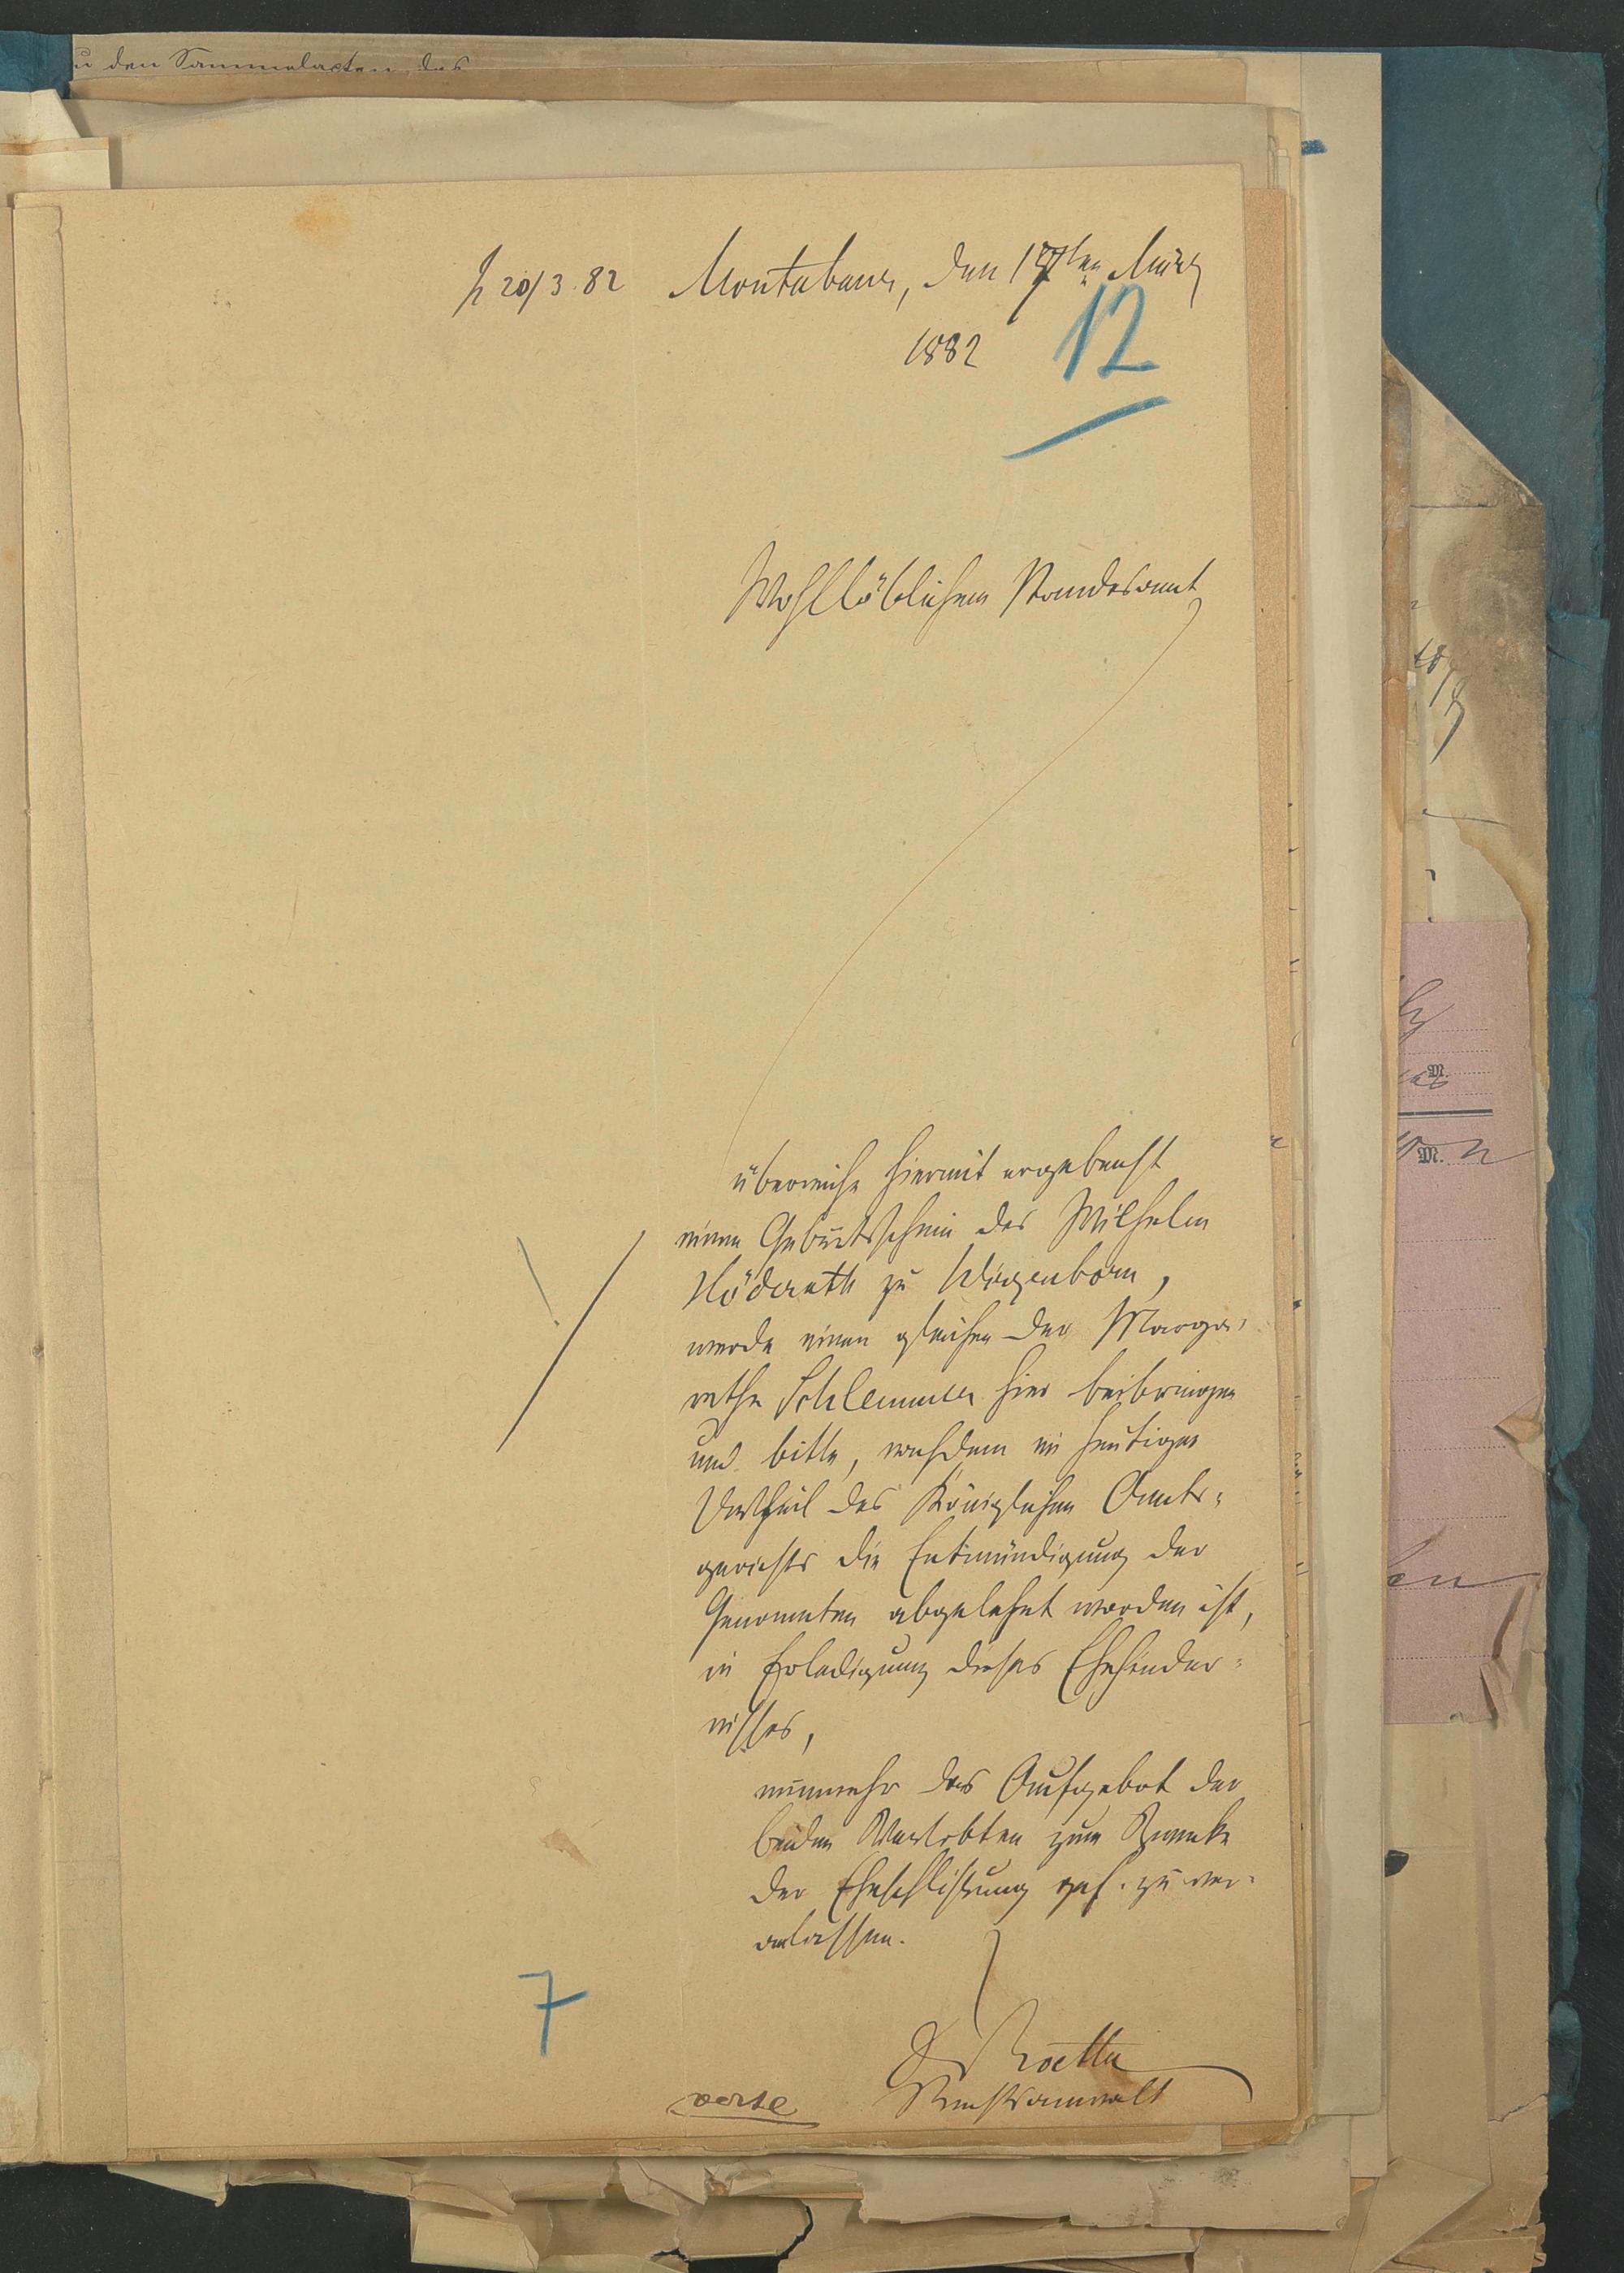 zu den Sammelacten des
20/3.82 Montabaur, den 17ten März
1882
12
Wohllöblichem Standesamt
überreiche hiermit ergebenst
einen Geburtsschein des Wilhelm
Höderath zu Wirzenborn,
werde einen gleichen der Marga-
rethe Schlemmer hier beibringen
und bitte, nachdem in heutigem
Urtheil des Königlichen Amts-
gerichts die Entmündigung der
Genannten abgelehnt worden ist,
in Erledigung dieses Ehehinder-
nisses,
nunmehr das Aufgebot der
beiden Verlobten zum Zwecke
der Eheschließung gef. zu ver-
anlassen.
7
Rechtsanwalt
M.
M.